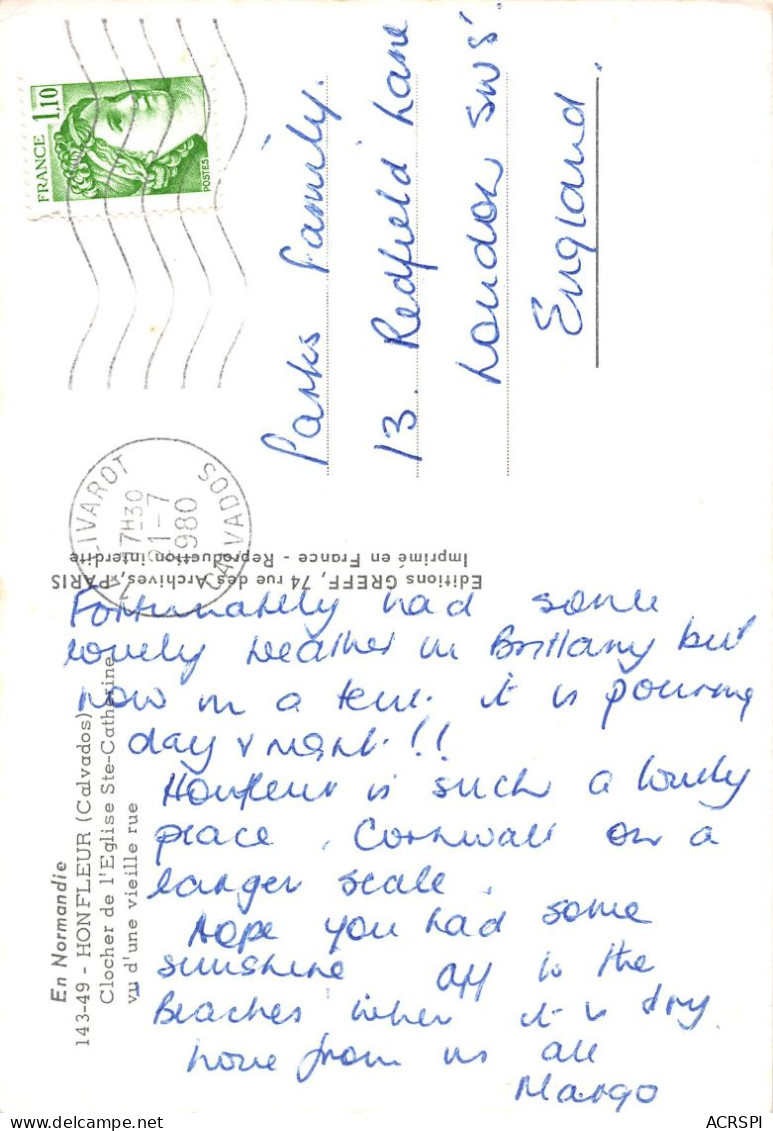 FRANCE 1,10
POSTES
LIVAROT
17H30
21-7
1980
CALVADOS
Parks Family.
13. Redfield Lane
London SW5.
England.
Editions GREFF, 74 rue des Archives, PARIS
Imprimé en France - Reproduction interdite
En Normandie
143-49 - HONFLEUR (Calvados)
Clocher de l'Eglise Ste-Catherine
vu d'une vieille rue
Fortunately had some
lovely weather in Brittany but
now in a tent it is pouring
day & night!!
Honfleur is such a lovely
place, Cornwall on a
larger scale.
Hope you had some
sunshine off to the
Beaches when it is dry
Love from us all
Margo
ACRSPI